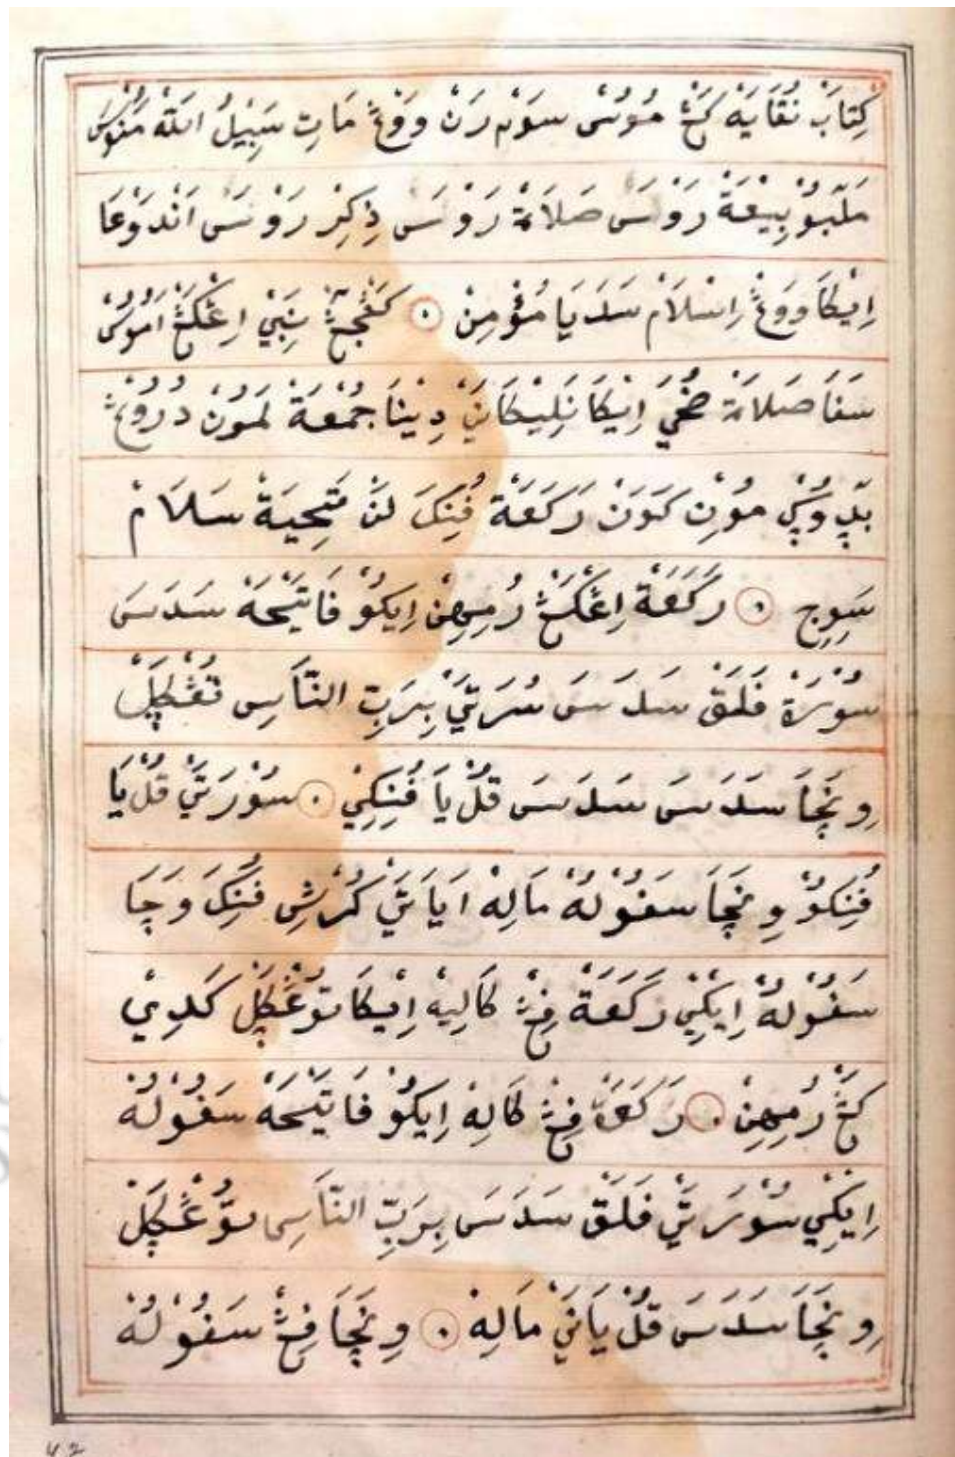 كِتَابْ نُقَايَهْ كَڠْ مُوْسْى سَوَمْ رَنْ وَوْڠْ مَاتِ سَبِيْلُ اللهْ
مَلَبُوْ بِيْعَةْ رَوْسَى صَلَاةْ رَوْسَى ذِكِرْ رَوْسَى اَنْدَوْعَا
اِيْكَا وَوْڠْ اِسْلَامْ سَدَيَا مُؤْمِنْ ۰ كَنْجَڠْ نَبِيْ اِڠْكَڠْ
سَفَا صَلَاةْ ضُحَى اِيْكَا نَلِيْكَانَيْ دِيْنَا جُمْعَةْ لَمَوْنْ دُرُوْڠْ
مَوْنِ كَوَنْ رَكَعَةْ فُنِكَ لَنْ تَحِيَةْ سَلَامْ
سَوِجِ ۰ رَكَعَةْ اِڠْكَڠْ رُمِيِهِنْ اِيكُوْ فَاتِيْحَهْ سَدَسَ
سُوْرَةْ فَلَقْ سَدَسَ سُرَتَيْ بِرَبِّ النَّاسِ تُڠْكِلْ
وِنَچَا سَدَسَ سَدَسَ قُلْ يَا فُنِكِيْ ۰ سُوْرَتَيْ قُلْ يَا
فُنِكُوْ وِنَچَا سَفُوْلُهْ مَالِهْ اَيَاتَيْ كُرْشِ فُنِكَ وَچَا
سَفُوْلُهْ اِيْكِيْ رَكَعَةْ فِڠْ كَالِيهْ اِيْكَا تُوْڠْكِلْ كَدِيْ
كَڠْ رُمِيِهِنْ ۰ رَكَعَةْ فِڠْ كَالِهْ اِيكُوْ فَاتِيْحَهْ سَفُوْلُهْ
اِيْكِيْ سُوْرَتَيْ فَلَقْ سَدَسَ بِرَبِّ النَّاسِ تُوْڠْكِلْ
وِنَچَا سَدَسَ قُلْ يَانَيْ مَالِهْ ۰ وِنَچَا فِڠْ سَفُوْلُهْ